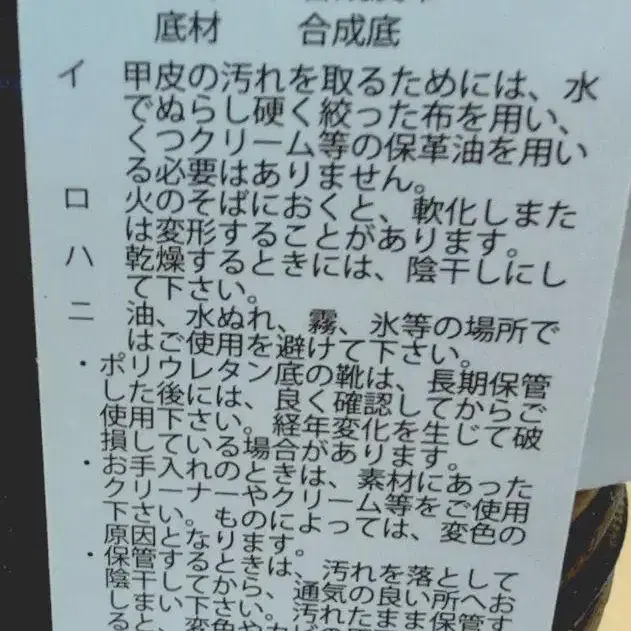 底材　合成底
イ　甲皮の汚れを取るためには、水
でぬらし硬く絞った布を用い、
くつクリーム等の保革油を用い
る必要はありません。
ロ　火のそばにおくと、軟化しまた
は変形することがあります。
ハ　乾燥するときには、陰干しにし
て下さい。
ニ　油、水ぬれ、霧、氷等の場所で
はご使用を避けて下さい。
・ポリウレタン底の靴は、長期保管
した後には、良く確認してからご
使用下さい。経年変化を生じて破
損している場合があります。
・お手入れのときは、素材にあった
クリーナーやクリーム等をご使用
下さい。ものによっては、変色の
原因となります。
・保管するときは、汚れを落として
陰干ししてから、通気の良い所へお
しまい下さい。汚れたまま保管す
ると、変色や